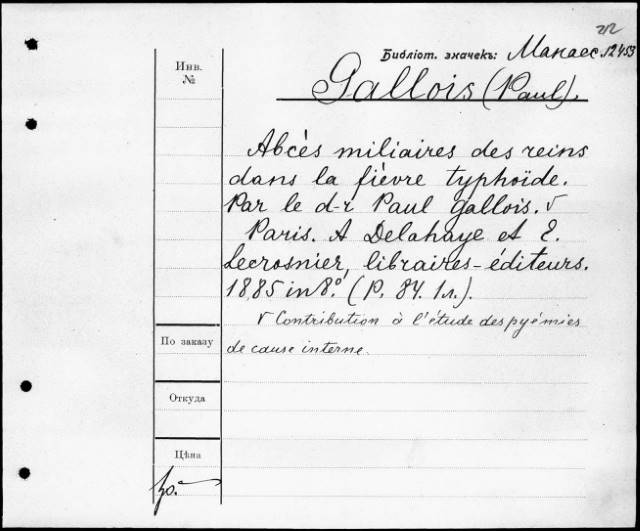 212
Библіот. значекъ: Манаес. 12453
Инв.
№
Gallois (Paul).
Abcès miliaires des reins
dans la fièvre typhoïde.
Par le d-r Paul Gallois. v
Paris. A Delahaye et E.
Lecrosnier, libraires-éditeurs.
1885 in 8º. (P. 84. 1л.).
v Contribution à l'étude des pyémies
de cause interne.
По заказу
Откуда
Цѣна